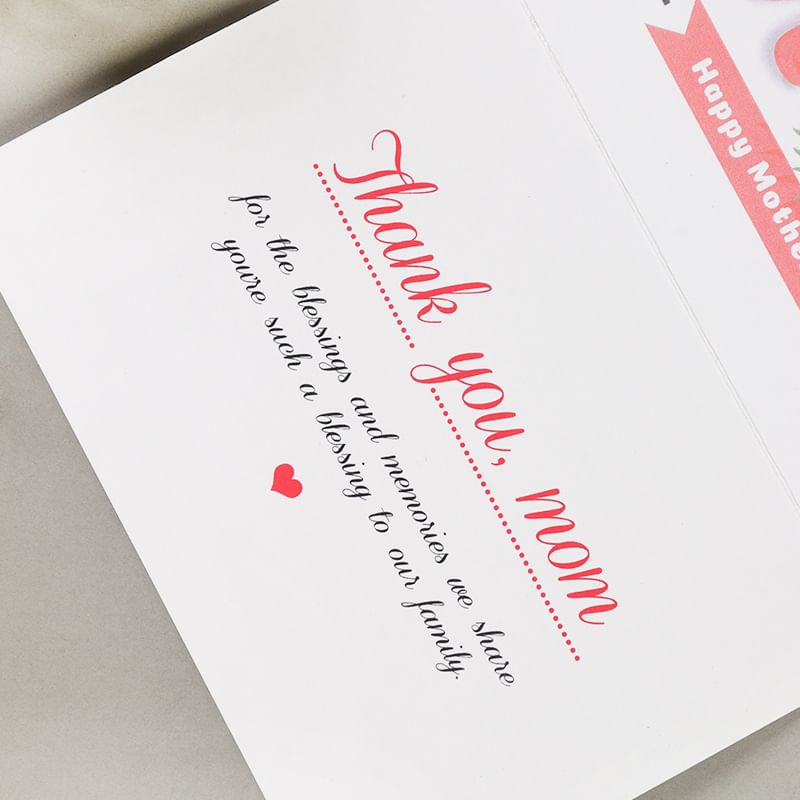 Thank you, mom
for the blessings and memories we share
you're such a blessing to our family.
Happy Mothe